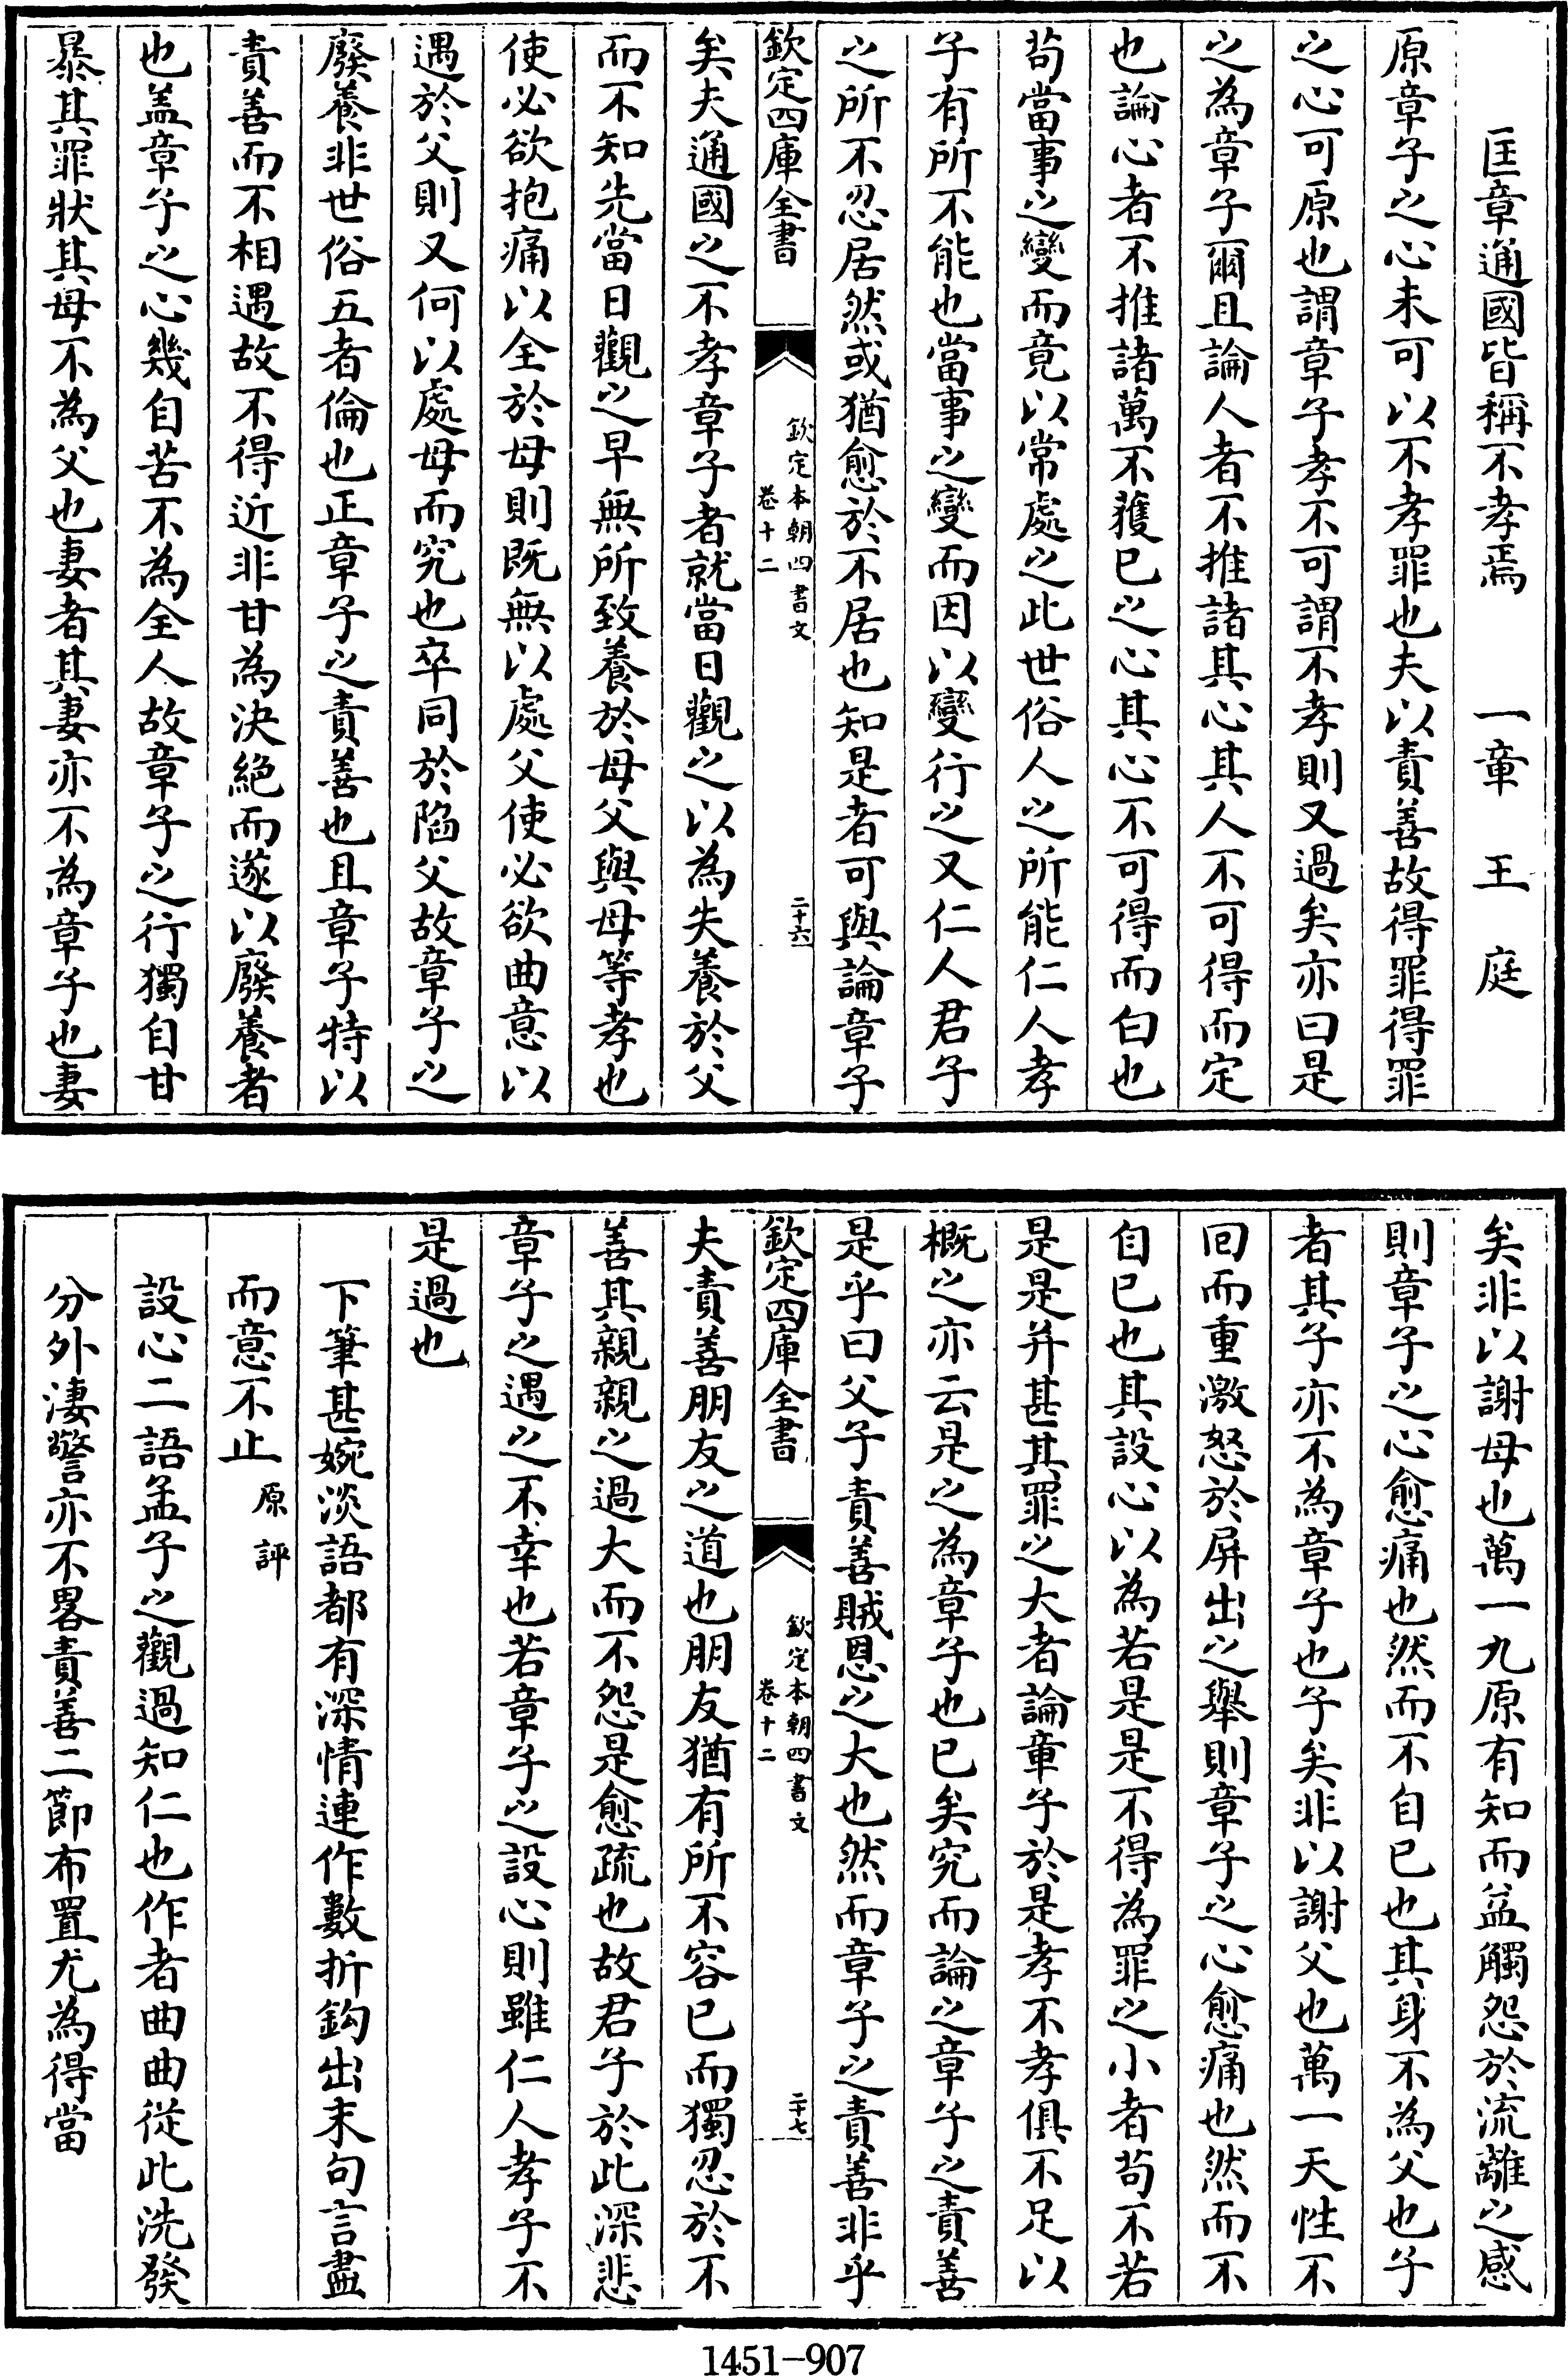 匡章通國皆稱不孝焉　一章　王庭
原章子之心未可以不孝罪也夫以責善故得罪得罪
之心可原也謂章子孝不可謂不孝則又過矣亦曰是
之為章子爾且論人者不推諸其心其人不可得而定
也論心者不推諸萬不獲已之心其心不可得而白也
苟當事之變而竟以常處之此世俗人之所能仁人孝
子有所不能也當事之變而因以變行之又仁人君子
之所不忍居然或猶愈於不居也知是者可與論章子
欽定四庫全書
欽定本朝四書文
卷十二
二十六
矣夫通國之不孝章子者就當日觀之以為失養於父
而不知先當日觀之早無所致養於母父與母等孝也
使必欲抱痛以全於母則既無以處父使必欲曲意以
遇於父則又何以處母而究也卒同於陷父故章子之
廢養非世俗五者倫也正章子之責善也且章子特以
責善而不相遇故不得近非甘為決絕而遂以廢養者
也盖章子之心幾自苦不為全人故章子之行獨自甘
暴其罪狀其母不為父也妻者其妻亦不為章子也妻
矣非以謝母也萬一九原有知而益觸怨於流離之感
則章子之心愈痛也然而不自已也其身不為父也子
者其子亦不為章子也子矣非以謝父也萬一天性不
回而重激怒於屏出之舉則章子之心愈痛也然而不
自已也其設心以為若是是不得為罪之小者苟不若
是是并甚其罪之大者論章子於是孝不孝俱不足以
概之亦云是之為章子也已矣究而論之章子之責善
是乎曰父子責善賊恩之大也然而章子之責善非乎
欽定四庫全書
欽定本朝四書文
卷十二
二十七
夫責善朋友之道也朋友猶有所不容已而獨忍於不
善其親親之過大而不怨是愈疏也故君子於此深悲
章子之遇之不幸也若章子之設心則雖仁人孝子不
是過也
下筆甚婉淡語都有深情連作數折鈎出末句言盡
而意不止原評
設心二語孟子之觀過知仁也作者曲曲從此洗發
分外淒警亦不畧責善二節布置尤為得當
1451-907